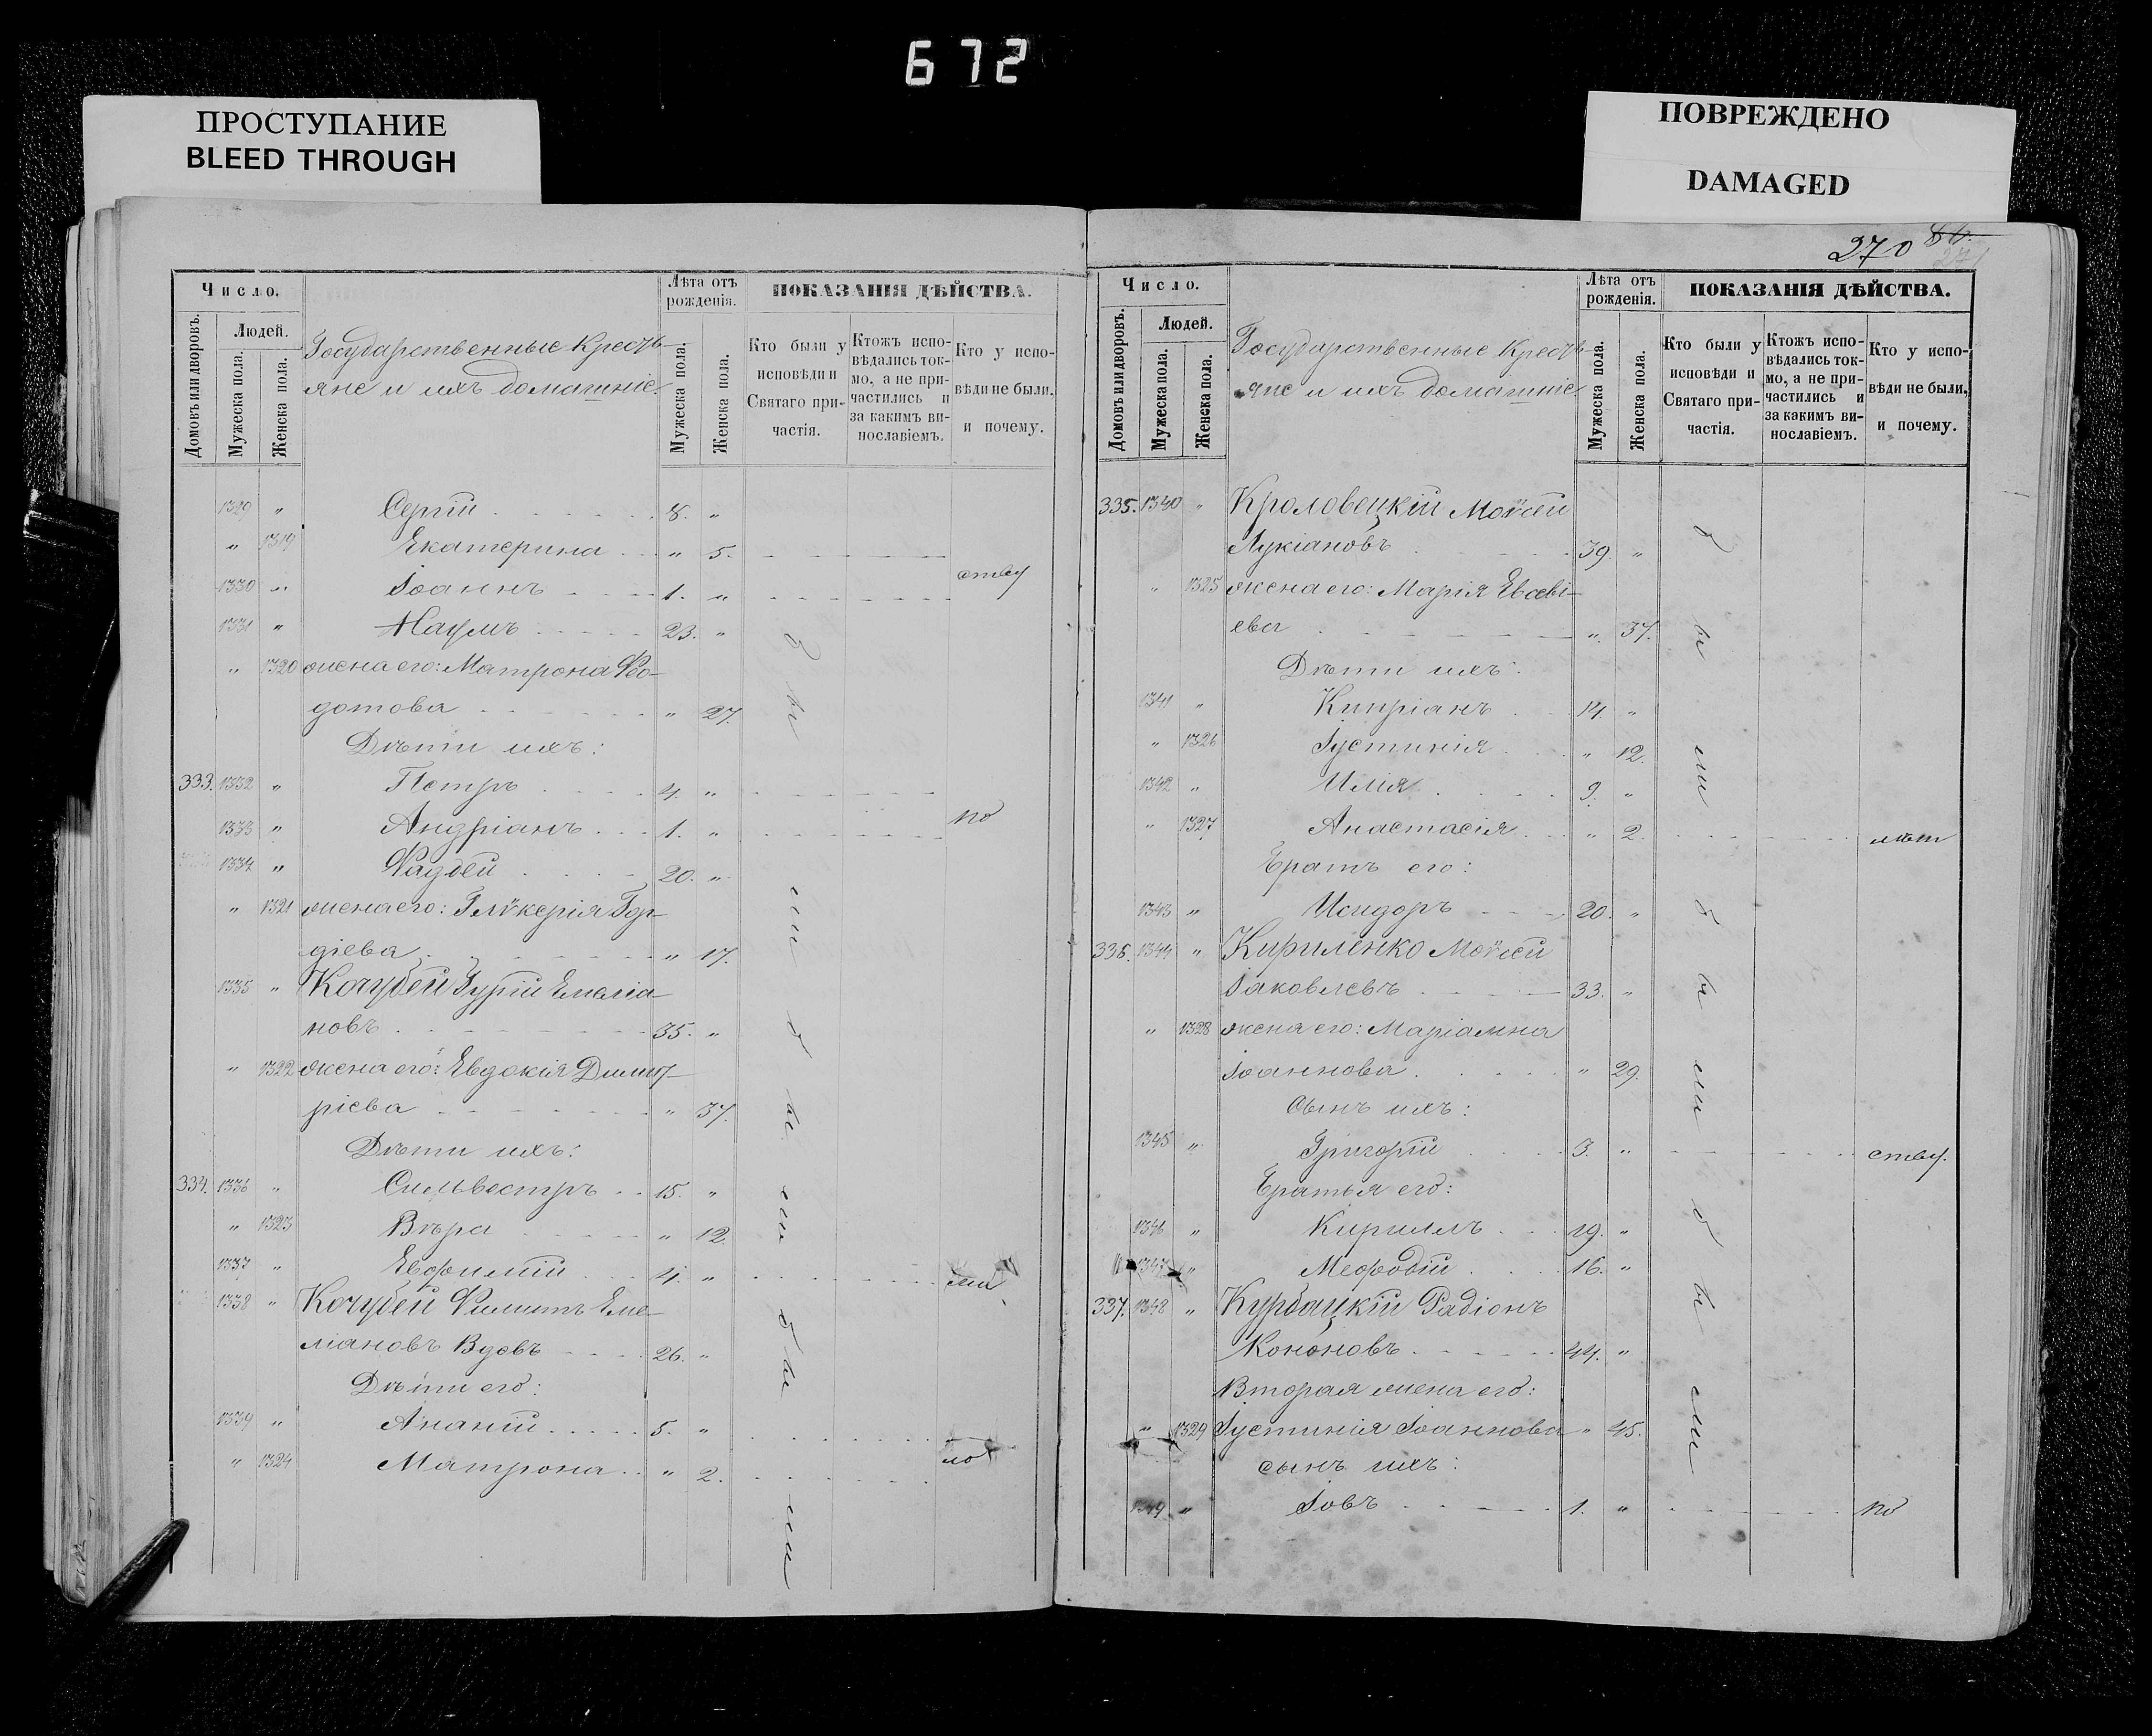 672
ПРОСТУПАНИЕ
BLEED THROUGH
ПОВРЕЖДЕНО
DAMAGED
Число.
Лѣта отъ рожденія.
ПОКАЗАНІЯ ДѢЙСТВА.
Домовъ или дворовъ.
Людей.
Мужеска пола.
Женска пола.
Государственные Кресть-
яне и ихъ домашніе.
Мужеска пола.
Женска пола.
Кто были у исповѣди и Святаго причастія.
Ктожъ исповѣдались токмо, а не причастились и за какимъ винославіемъ.
Кто у исповѣди не были, и почему.
1329 " Сергій 8. "
" 1319 Екатерина " 5.
ству
1330 " Іоаннъ 1. "
1331 " Наумъ 23. "
" 1320 жена его: Матрона Ѳео-
дотова " 27.
Дѣти ихъ:
333. 1332 " Петръ 4. "
1333 " Андріанъ 1. " по
1334 " Ѳаддей 20. "
" 1321 жена его: Глѵкерія Гор-
діева " 17.
1335 " Кочубей Гурій Емеліа-
новъ 35. "
" 1322 жена его: Евдокія Димит-
ріева " 37.
Дѣти ихъ:
334. 1336 " Сильвестръ 15. "
" 1323 Вѣра " 12.
1337 " Евфимій 4. "
1338 " Кочубей Филиппъ Еме-
ліановъ Вдовъ 26. "
Дѣти его:
1339 " Ананій 5. "
" 1324 Матрона " 2.
были были были были
270
Число.
Лѣта отъ рожденія.
ПОКАЗАНІЯ ДѢЙСТВА.
Домовъ или дворовъ.
Людей.
Мужеска пола.
Женска пола.
Государственные Кресть-
яне и ихъ домашніе.
Мужеска пола.
Женска пола.
Кто были у исповѣди и Святаго причастія.
Ктожъ исповѣдались токмо, а не причастились и за какимъ винославіемъ.
Кто у исповѣди не были, и почему.
335. 1340 " Кроловецкій Моѵсей
Лукіановъ 39. "
" 1325 жена его: Марія Евсеві-
ева " 37.
Дѣти ихъ:
1341 " Кипріанъ 14. "
" 1326 Іустинія " 12.
1342 " Илія 9. "
" 1327 Анастасія " 2. лѣт
Братъ его:
1343 " Исидоръ 20. "
336. 1344 " Кириленко Моѵсей
Іаковлевъ 33. "
" 1328 жена его: Маріамна
Іоаннова " 29.
Сынъ ихъ:
1345 " Григорій 3. " ству.
Братья его:
1346 " Кириллъ 19. "
1347 " Меѳодій 16. "
337. 1348 " Курбацкій Радіонъ
Кононовъ 44. "
Вторая жена его:
" 1329 Іустинія Іоаннова " 45.
сынъ ихъ:
1349 " Іовъ 1. " по
были были были